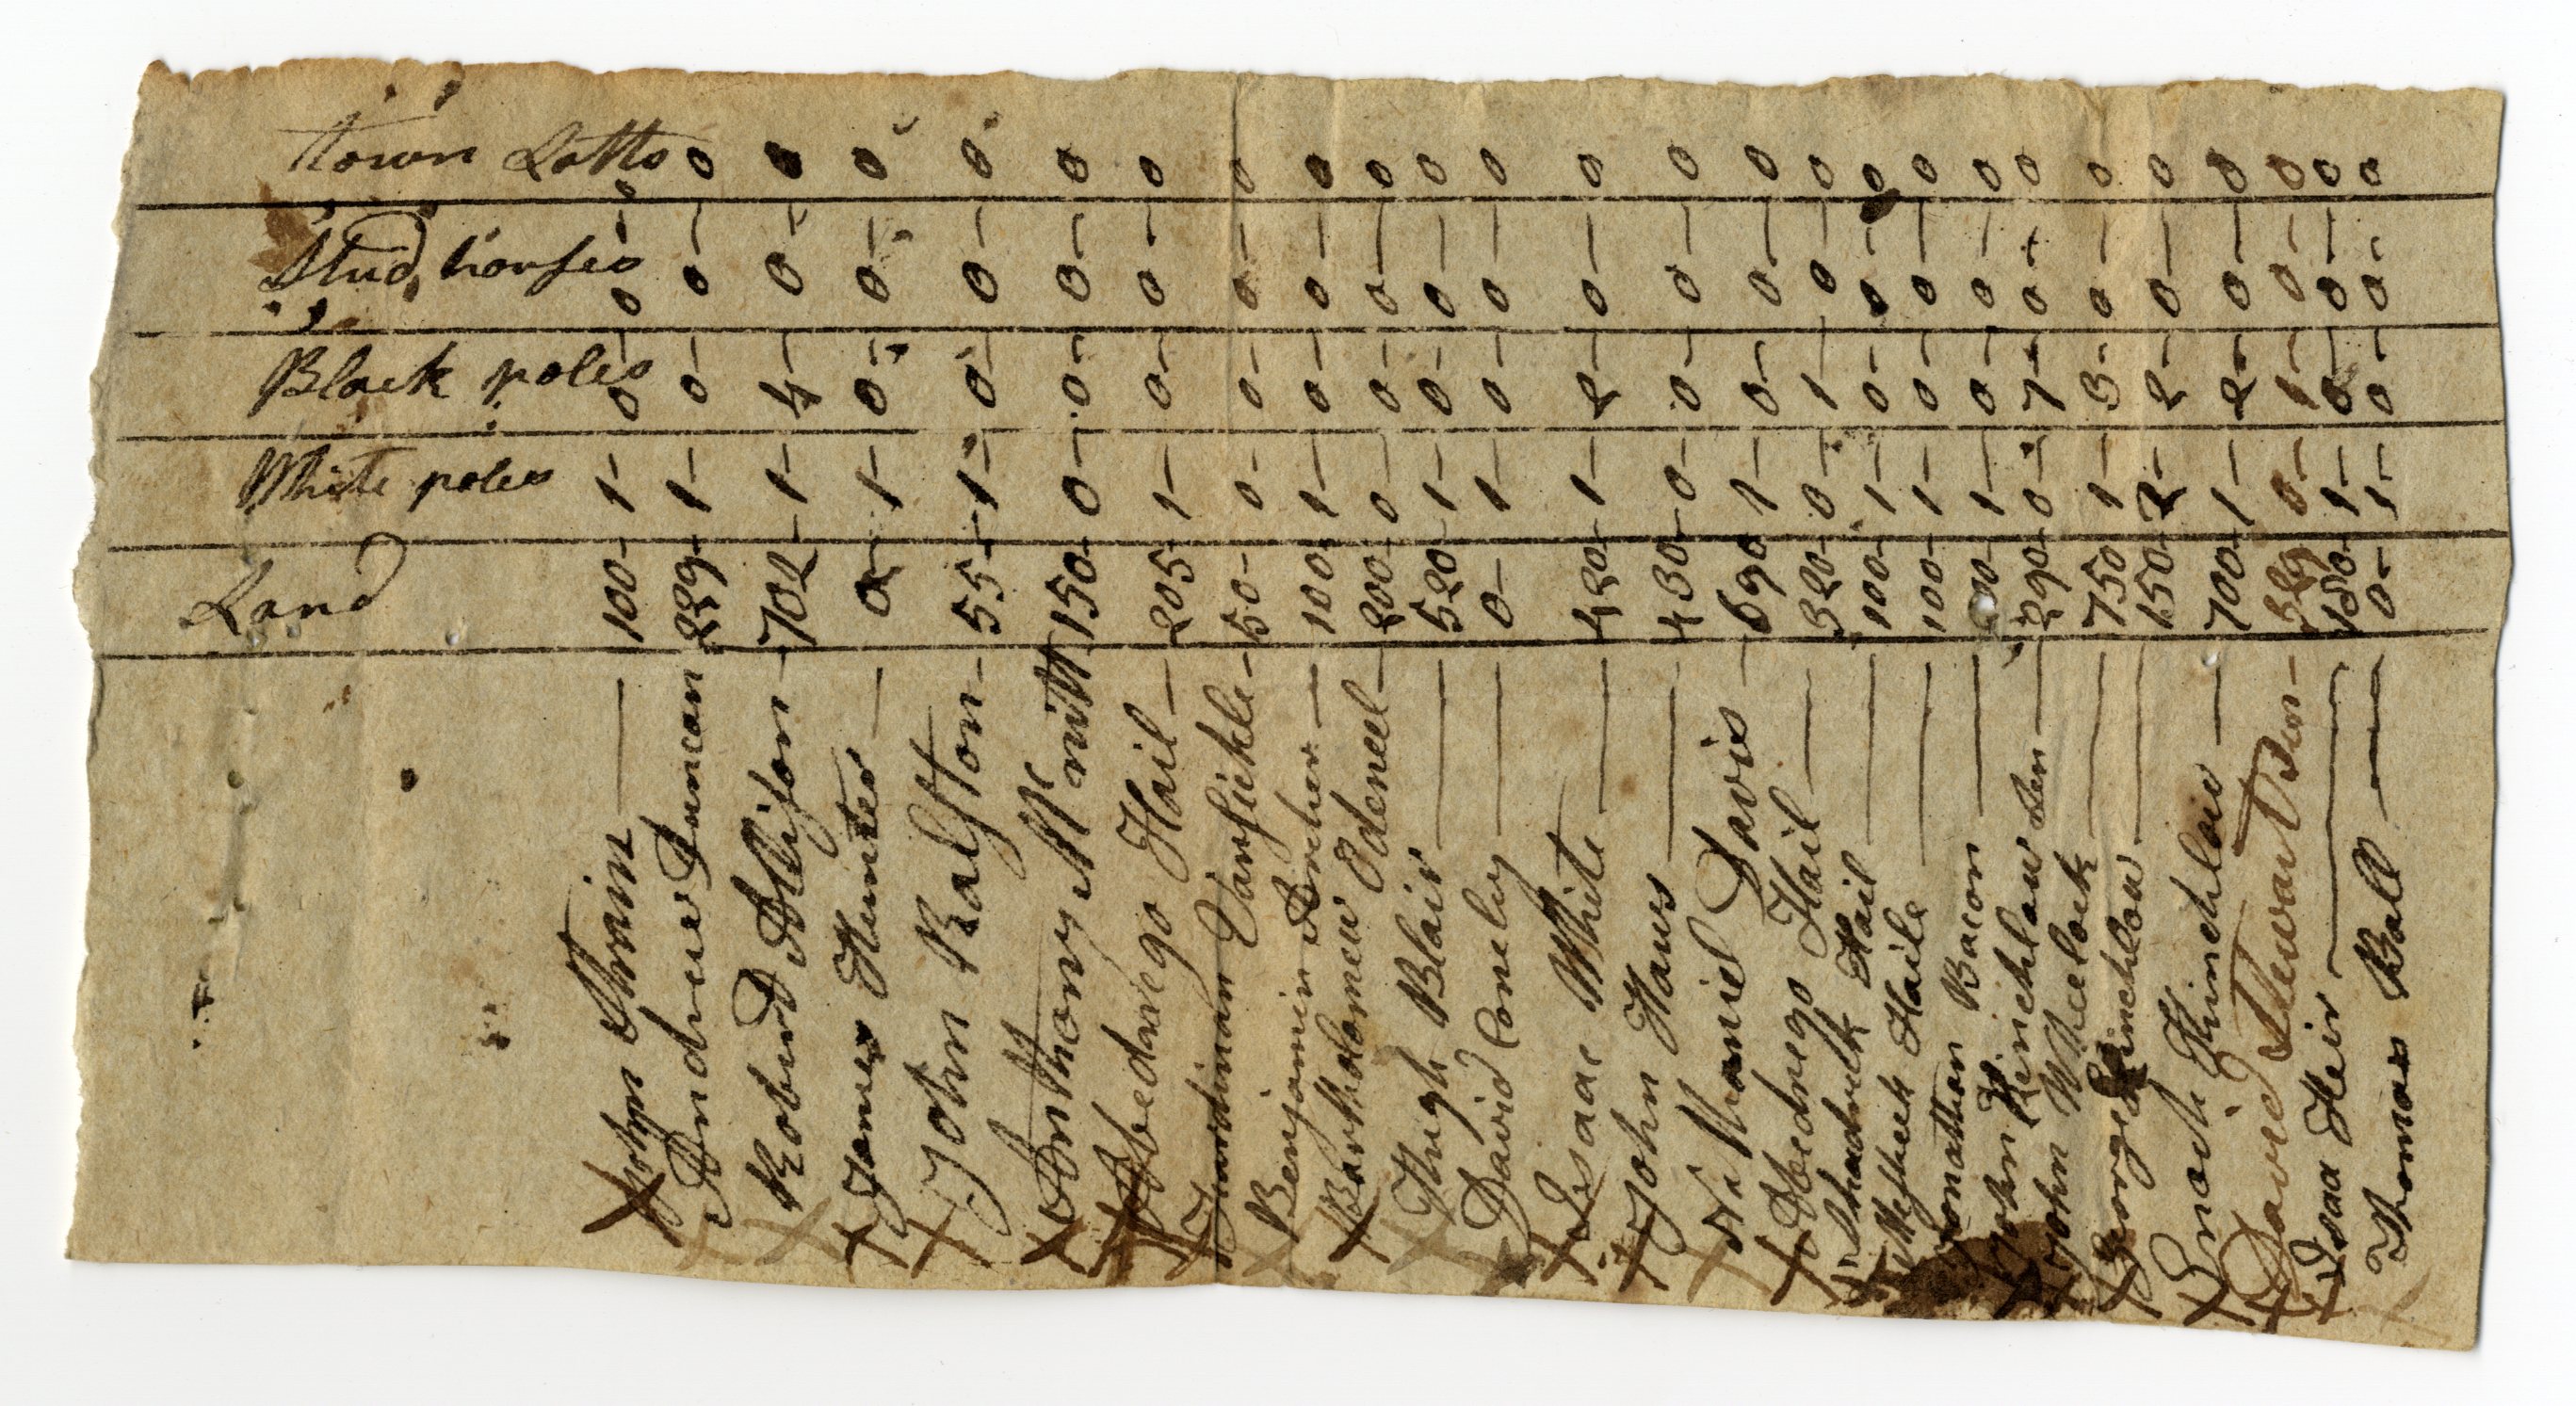 Land White poles Black poles Stud horses town Lotts
John Strain — 100 — 1 — 0 — 0 — 0
Andrew Duncan 229 — 1 — 0 — 0 — 0
Robert Allison — 702 — 1 — 4 — 0 — 0
James Hunter — 0 — 1 — 0 — 0 — 0
John Ralston — 55 — 1 — 0 — 0 — 0
Anthony McNitt 150 — 0 — 0 — 0 — 0
Abednego Hail — 205 — 1 — 0 — 0 — 0
Vansickle — 50 — 0 — 0 — 0 — 0
Benjamin Archer — 100 — 1 — 0 — 0 — 0
Bartholomew Odeneel — 200 — 0 — 0 — 0 — 0
Hugh Blair — 520 — 1 — 0 — 0 — 0
David Conely — 0 — 1 — 0 — 0 — 0
Isaac White — 420 — 1 — 2 — 0 — 0
John Haws — 430 — 0 — 0 — 0 — 0
Nathaniel Davis — 690 — 1 — 0 — 0 — 0
Abednego Hail — 320 — 0 — 1 — 0 — 0
Shadrick Hail — 100 — 1 — 0 — 0 — 0
Mesheck Haile — 100 — 1 — 0 — 0 — 0
Jonathan Bacon — 1 — 0 — 0 — 0
John Hinchlaw Sen — 290 — 0 — 7 — 0 — 0
John Wheelock — 750 — 1 — 3 — 0 — 0
George Hinchlow — 150 — 2 — 2 — 0 — 0
Enoch Hinchlaw — 700 — 1 — 2 — 0 — 0
David Stewart Sen — 329 — 0 — 1 — 0 — 0
Isaa Heir — 180 — 1 — 0 — 0 — 0
Thomas Ball — 0 — 1 — 0 — 0 — 0